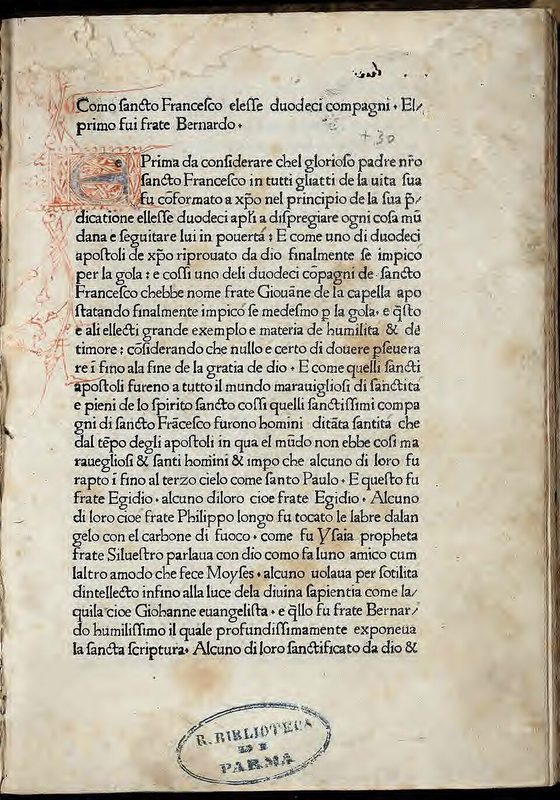 Como ſancto Franceſco eleſſe duodeci compagni . El/
primo fui frate Bernardo .
+30
IN Prima da conſiderare chel glorioſo padre nr̄o
ſancto Franceſco in tutti gliatti de la uita ſua
fu cōformato a xp̄o nel principio de la ſua p̄/
dicatione elleſſe duodeci apl̄i a diſpregiare ogni coſa mū
dana e ſeguitare lui in pouertá : E come uno di duodeci
apoſtoli de xp̄o riprouato da dio finalmente ſe impico
per la gola : e coſſi uno deli duodeci cōpagni de ſancto
Franceſco chebbe nome frate Giouāne de la capella apo
ſtatando finalmente impico ſe medeſmo p la gola . e q̄ſto
e ali ellecti grande exemplo e materia de humilita & de
timore : cōſiderando che nullo e certo di douere pſeuera
re ī fino ala fine de la gratia de dio . E come quelli ſancti
apoſtoli fureno a tutto il mundo marauiglioſi di ſanctita
e pieni de lo ſpirito ſancto coſſi quelli ſanctiſſimi compa
gni di ſancto Frāceſco furono homini ditāta ſantita che
dal tēpo degli apoſtoli in qua el mūdo non ebbe coſi ma
raueglioſi & ſanti homini & impo che alcuno di loro fu
rapto ī fino al terzo cielo come ſanto Paulo . E queſto fu
frate Egidio . alcuno diloro cioe frate Egidio . Alcuno
di loro cioe frate Philippo longo fu tocato le labre dalan
gelo con el carbone di fuoco . come fu Yſaia propheta
frate Silueſtro parlaua con dio como fa luno amico cum
laltro amodo che fece Moyſes . alcuno uolaua per ſotilita
dintellecto infino alla luce dela diuina ſapientia come la/
quila cioe Giohanne euangeliſta . e q̄llo fu frate Bernar/
do humiliſſimo il quale profundiſſimamente exponeua
la ſancta ſcriptura . Alcuno di loro ſanctificato da dio &
R. BIBLIOTECA
DI
PARMA